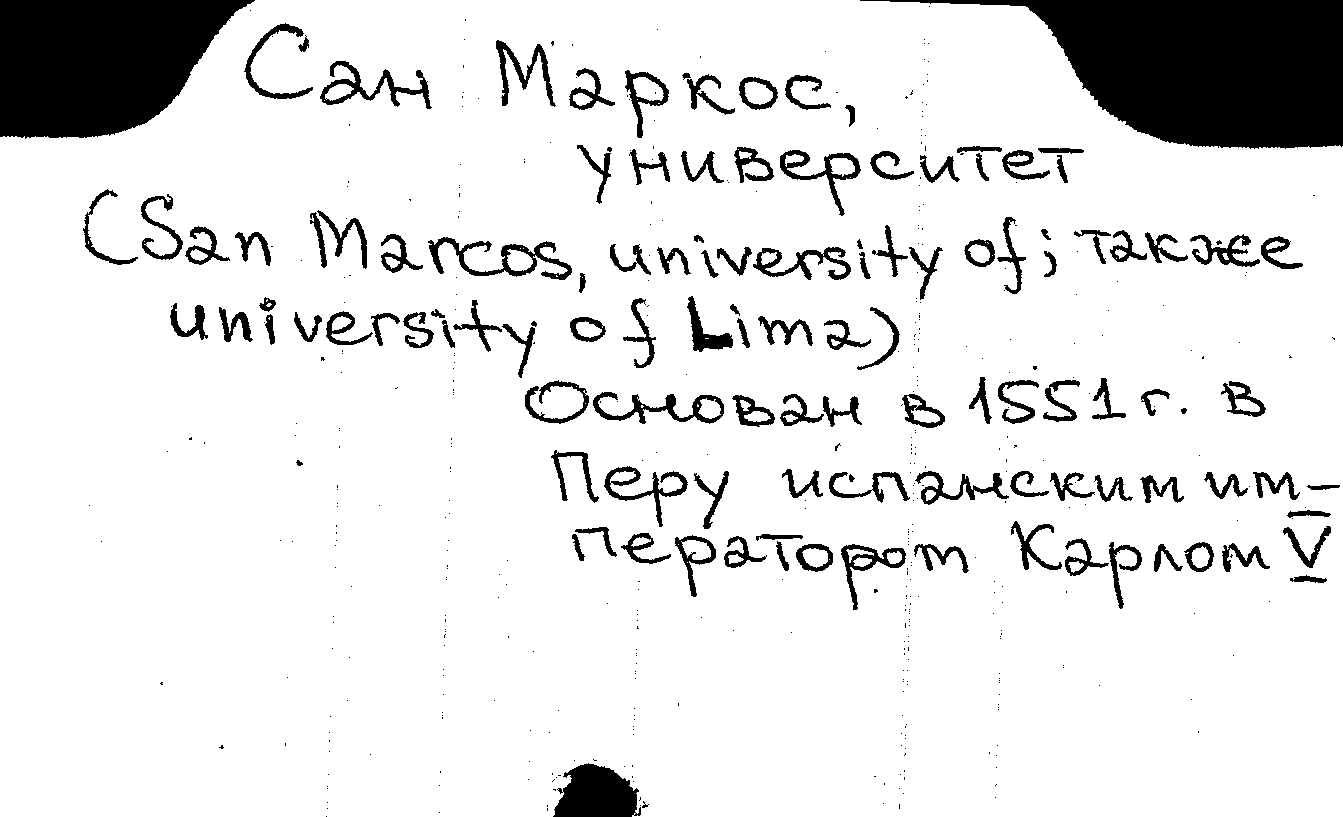 Сан Маркос,
университет
(San Marcos, university of; также
university of Lima)
Основан в 1551 г. в
Перу испанским им-
ператором Карлом V